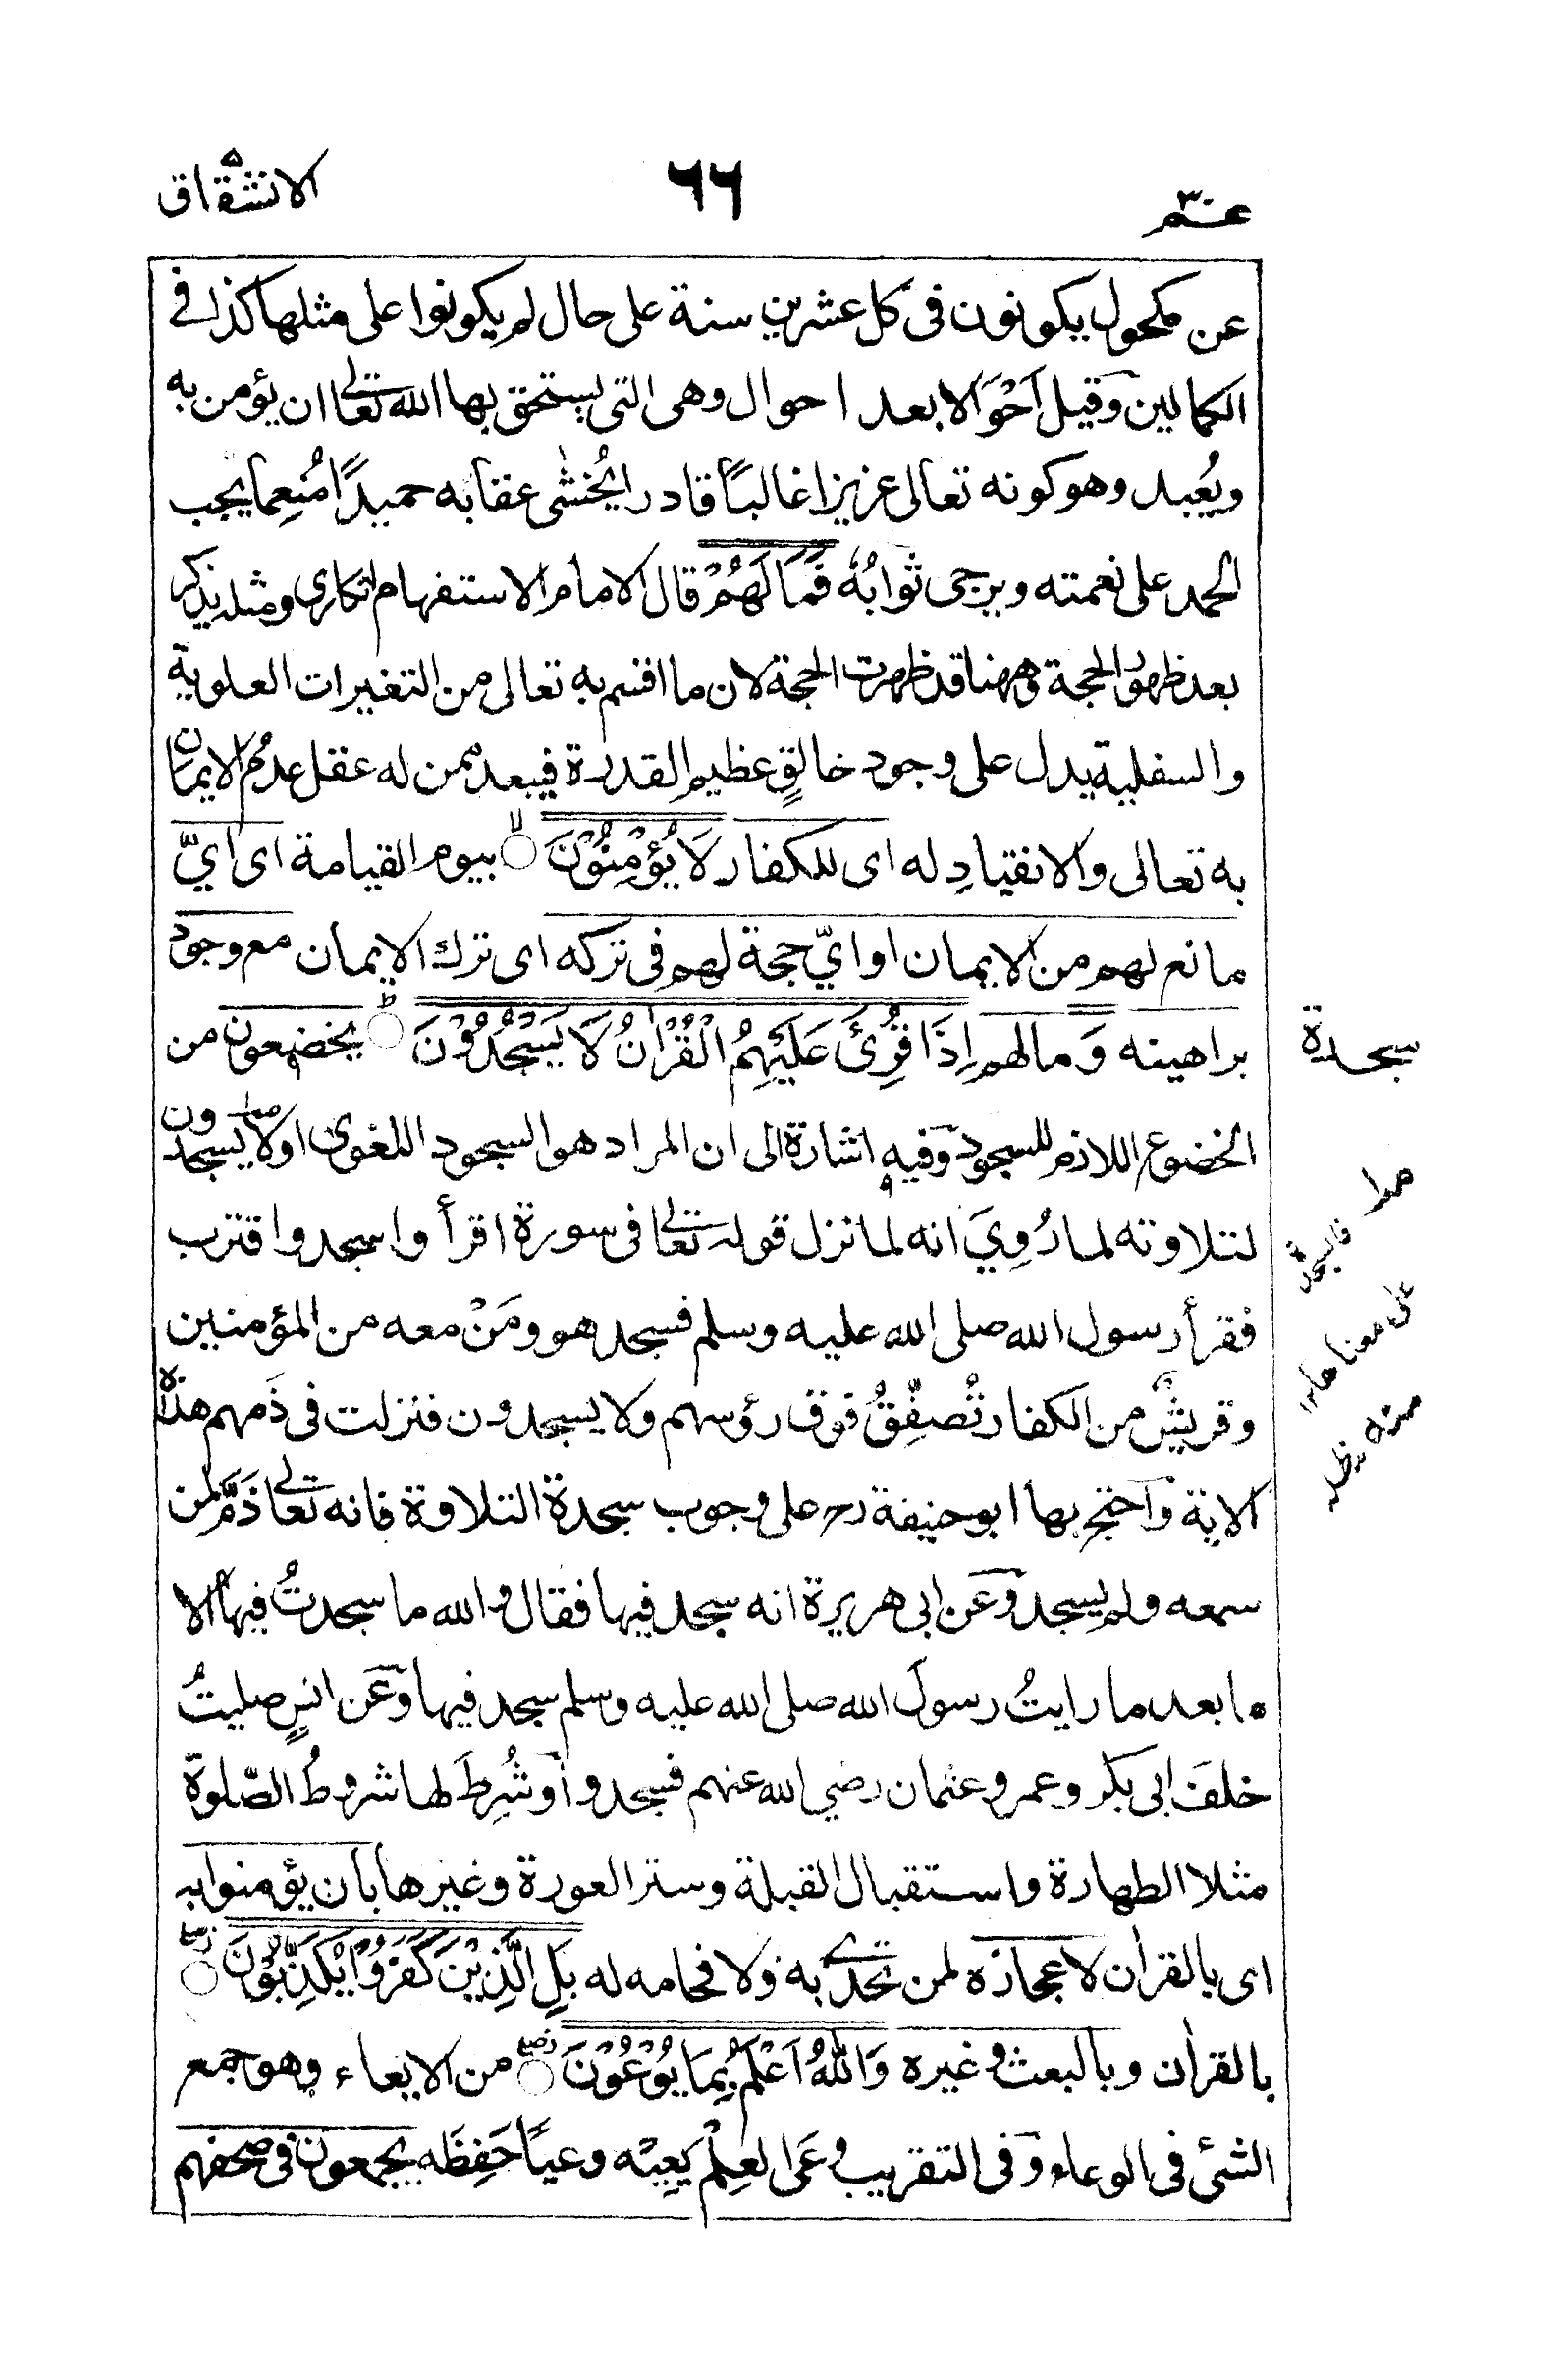 عـم ٣٠
٦٦
الانشقاق
عن مكحول يكونون فى كل عشرين سنة على حال لم يكونوا على مثلها كذا فے
الكمالين وقيل اَحْوَالا بعد احوال وهى التى يستحق بها الله تعالى ان يؤمن به
ويُعبد وهو كونه تعالى عزيزا غالباً قادرا يُخشٰى عقابه حميدًا مُنعِما يجب
الحمد على نعمته ويرجى ثوابُهٗ فَمَا لَهُمْ قال الامام الاستفهام انكارى ومثله يذكر
بعد ظهور الحجة وههنا قد ظهرت الحجة لان ما اقسم به تعالى من التغيرات العلوية
والسفلية يدل على وجود خالقٍ عظيم القدرة فيبعد ممن له عقل عدمُ الايمان
به تعالى والانقيادِ له اى للكفار لَا يُؤْمِنُوْنَ ○ لا بيوم القيامة اى اىّ
مانع لهم من الايمان او اىّ حجة لهم فى تركه اى ترك الايمان مع وجود
براهينه وَمالهم اِذَا قُرِئَ عَلَيْهِمُ الْقُرْاٰنُ لَا يَسْجُدُوْنَ ○ ط يخضعون من
سجدة
الخضوع اللازم للسجود وفيه اشارة الى ان المراد هو السجود اللغوى اولا يسجدون
لتلاوته لما رُوِيَ انه لما نزل قوله تعالى فى سورة اقرأ واسجد واقترب
فقرأ رسول الله صلى الله عليه وسلم فسجد هو ومَنْ معه من المؤمنين
وقريشٌ من الكفار تُصفِّقُ فوق رؤسهم ولا يسجدون فنزلت فى ذَمهم هذه
الاية واحتج بها ابو حنيفة رح على وجوب سجدة التلاوة فانه تعالى ذَمَّ لمن
سمعه ولم يسجد وعن ابى هريرة انه سجد فيها فقال والله ما سجدتُ فيها الا
ما بعد ما رايتُ رسولَ الله صلى الله عليه وسلم سجد فيها وعَن انسٍ صليتُ
خلفَ ابى بكر وعمر وعثمان رضي الله عنهم فسجدوا وشُرِطَ لها شروطُ الصّلوة
مثلا الطهارة واستقبال القبلة وستر العورة وغيرها بان يؤمنوا به
اى بالقران لاعجازه لمن تحدى به ولافحامه له بَلِ الَّذِيْنَ كَفَرُوْا يُكَذِّبُوْنَ ○
بالقران وبالبعث وغيره وَاللّٰهُ اَعْلَمُ بِمَا يُوْعُوْنَ ○ من الايعاء وهو جمع
الشئ فى الوعاء وفى التقريب وعَى العِلْمَ يَعِيْه وعياً حَفِظَه يجمعون فى صحفهم